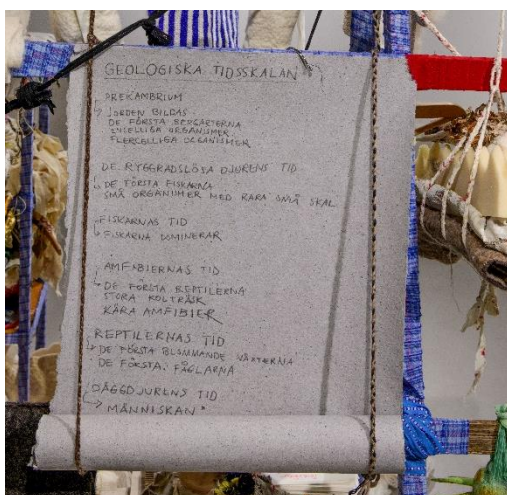 GEOLOGISKA TIDSSKALAN
PREKAMBRIUM
JORDEN BILDAS
DE FÖRSTA BERGARTERNA
ENCELLIGA ORGANISMER
FLERCELLIGA ORGANISMER
DE RYGGRADSLÖSA DJURENS TID
DE FÖRSTA FISKARNA
SMÅ ORGANISMER MED BARA SMÅ SKAL
FISKARNAS TID
FISKARNA DOMINERAR
AMFIBIERNAS TID
DE FÖRSTA REPTILERNA
STORA KOLTRÄSK
AMFIBIER
REPTILERNAS TID
DE FÖRSTA BLOMMANDE VÄXTERNA
DE FÖRSTA FÅGLARNA
DÄGGDJURENS TID
MÄNNISKAN